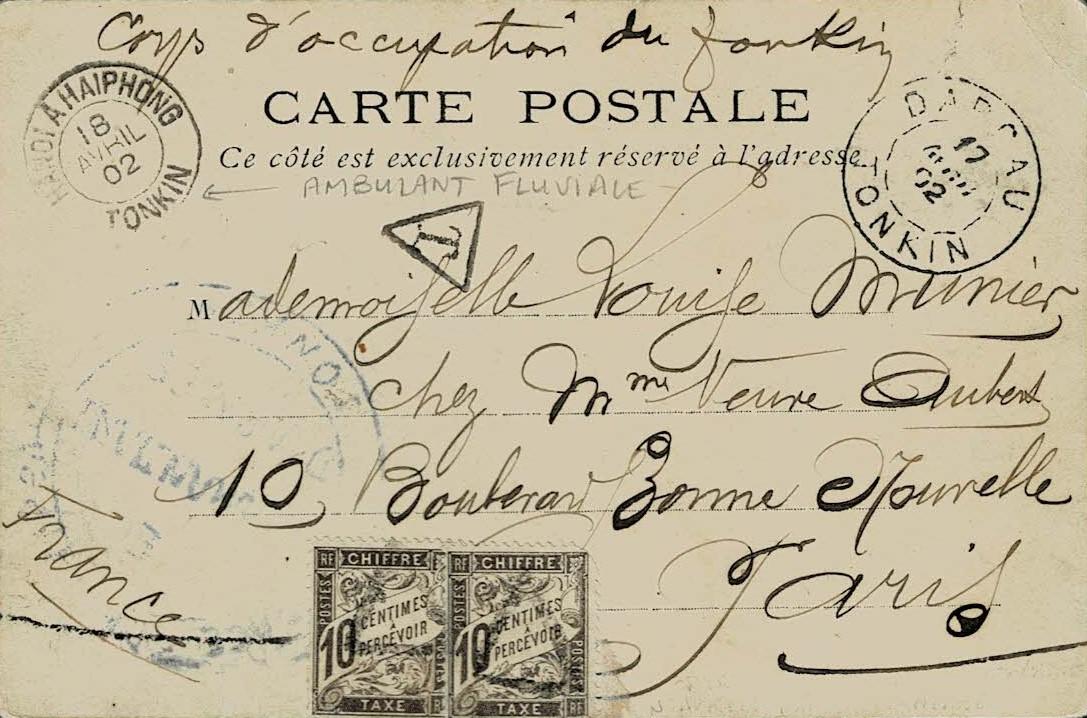 Corps d'occupation du Tonkin
CARTE POSTALE
Ce côté est exclusivement réservé à l'adresse
HANOI A HAIPHONG
18
AVRIL
02
TONKIN
DAPCAU
17
AVRIL
02
TONKIN
← AMBULANT FLUVIALE
T
Mademoiselle Louise Munier
chez Mme Veuve Aubert
10 Boulevard Bonne Nouvelle
Paris
France
RF CHIFFRE
POSTES
10 CENTIMES
A
PERCEVOIR
TAXE
RF CHIFFRE
POSTES
10 CENTIMES
A
PERCEVOIR
POSTES
TAXE RF